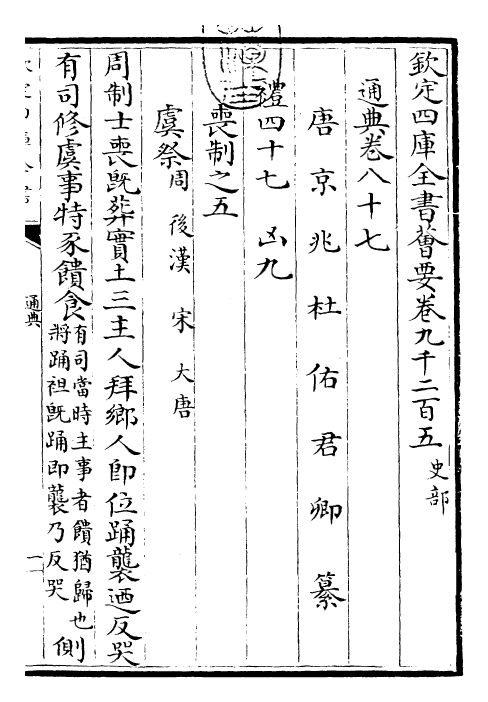 欽定四庫全書薈要卷九千二百五 史部
通典卷八十七
唐京兆杜佑君卿纂
禮四十七 凶九
喪制之五
虞祭周 後漢 宋 大唐
周制士喪既葬實土三主人拜鄉人即位踊襲迺反哭
有司修虞事特豕饋食有司當時主事者饋猶歸也將踊袒既踊即襲乃反哭側
通典